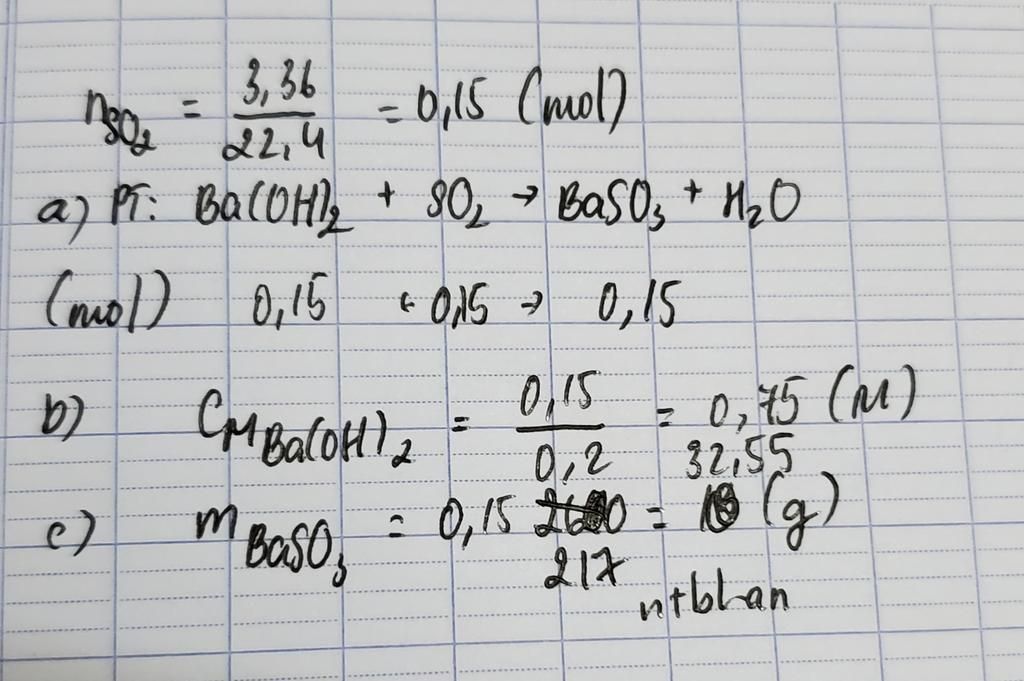 nSO₂ = 3,36 / 22,4 = 0,15 (mol)
a) PT: Ba(OH)₂ + SO₂ → BaSO₃ + H₂O
(mol) 0,15 ← 0,15 → 0,15
b) CM Ba(OH)₂ = 0,15 / 0,2 = 0,75 (M)
32,55
c) mBaSO₃ = 0,15 = (g)
217
n+bLan